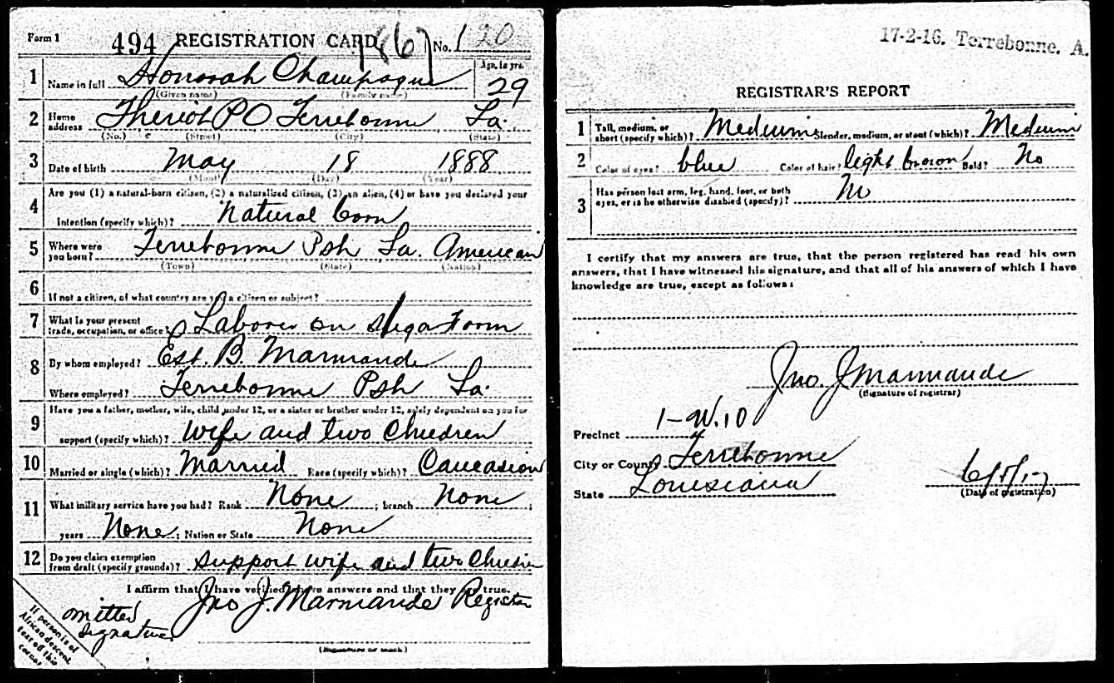 Form 1
494 REGISTRATION CARD (6) No. 120
1 Name in full Honorah Champagne Age, in yrs. 29
(Given name) (Family name)
2 Home address Theriot PO Terrebonne La.
(No.) (Street) (City) (State)
3 Date of birth May 18 1888
(Month) (Day) (Year)
4 Are you (1) a natural-born citizen, (2) a naturalized citizen, (3) an alien, (4) or have you declared your
intention (specify which)? Natural born
5 Where were you born? Terrebonne Psh La. American
(Town) (State) (Nation)
6 If not a citizen, of what country are you a citizen or subject?
7 What is your present trade, occupation, or office? Laborer on Suga Farm
8 By whom employed? Est. B. Marmande
Where employed? Terrebonne Psh La.
9 Have you a father, mother, wife, child under 12, or a sister or brother under 12, solely dependent on you for
support (specify which)? Wife and two Children
10 Married or single (which)? Married Race (specify which)? Caucasion
11 What military service have you had? Rank None ; branch None ;
years None ; Nation or State None
12 Do you claim exemption from draft (specify grounds)? Support wife and two Children
I affirm that I have verified above answers and that they are true.
Jno J. Marmande Register
omitted signature
(Signature or mark)
If person is of
African descent
tear off this
corner
17-2-16. Terrebonne, A.
REGISTRAR'S REPORT
1 Tall, medium, or short (specify which)? Medium Slender, medium, or stout (which)? Medium
2 Color of eyes? blue Color of hair? light brown Bald? No
3 Has person lost arm, leg, hand, foot, or both eyes, or is he otherwise disabled (specify)? No
I certify that my answers are true, that the person registered has read his own
answers, that I have witnessed his signature, and that all of his answers of which I have
knowledge are true, except as follows:
Jno. J Marmande
(Signature of registrar)
Precinct 1-W.10
City or County Terrebonne
State Louisiana
6/5/17
(Date of registration)